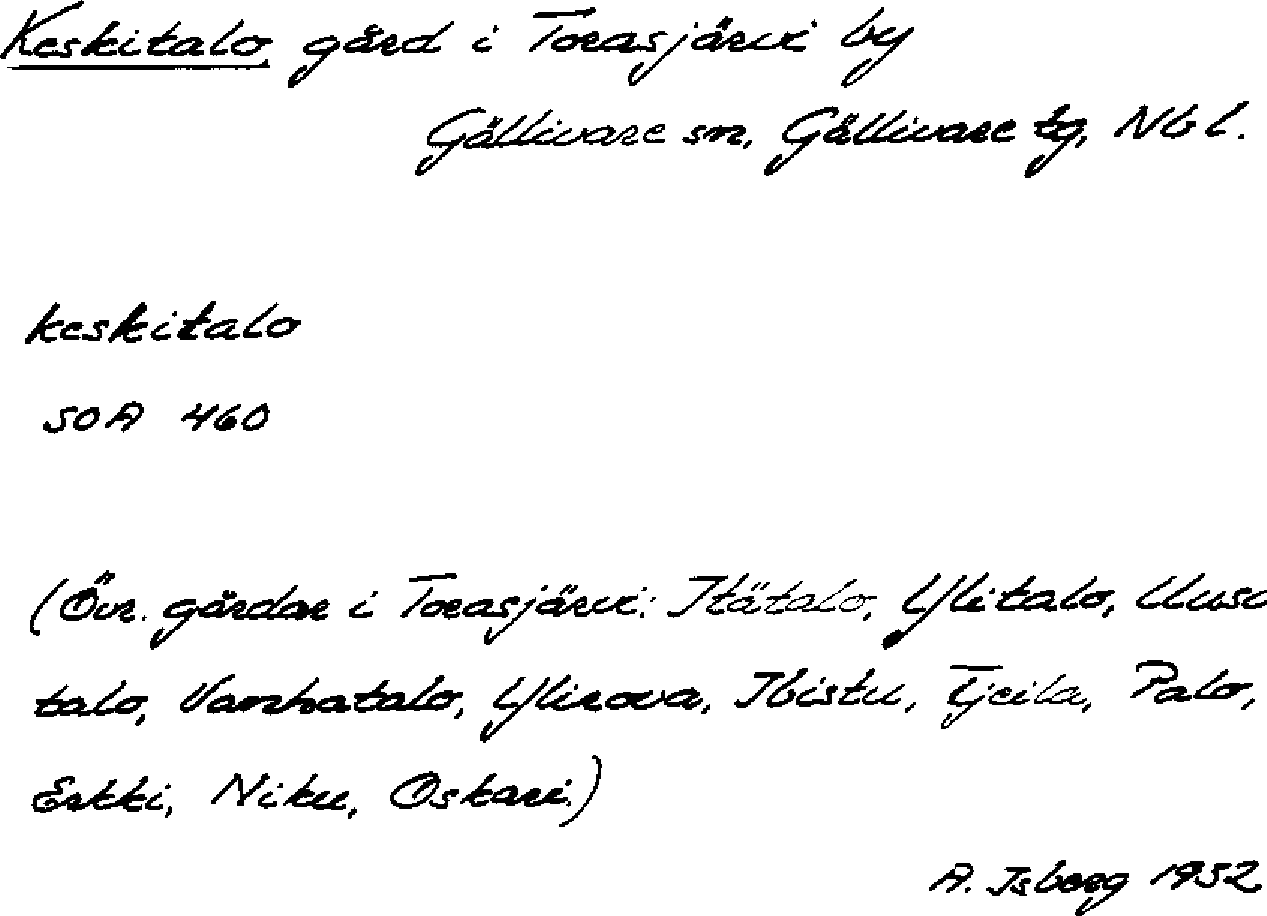 Keskitalo gård i Torasjärvi by
Gällivare sn, Gällivare tg, Nb l.
keskitalo
SOA 460
(Övr. gårdar i Torasjärvi: Itätalo, Ylitalo, Uusi
talo, Vanhatalo, Ylirova, Ibistu, Tjeila, Palo,
Erkki, Niku, Oskari.)
A. Isberg 1952